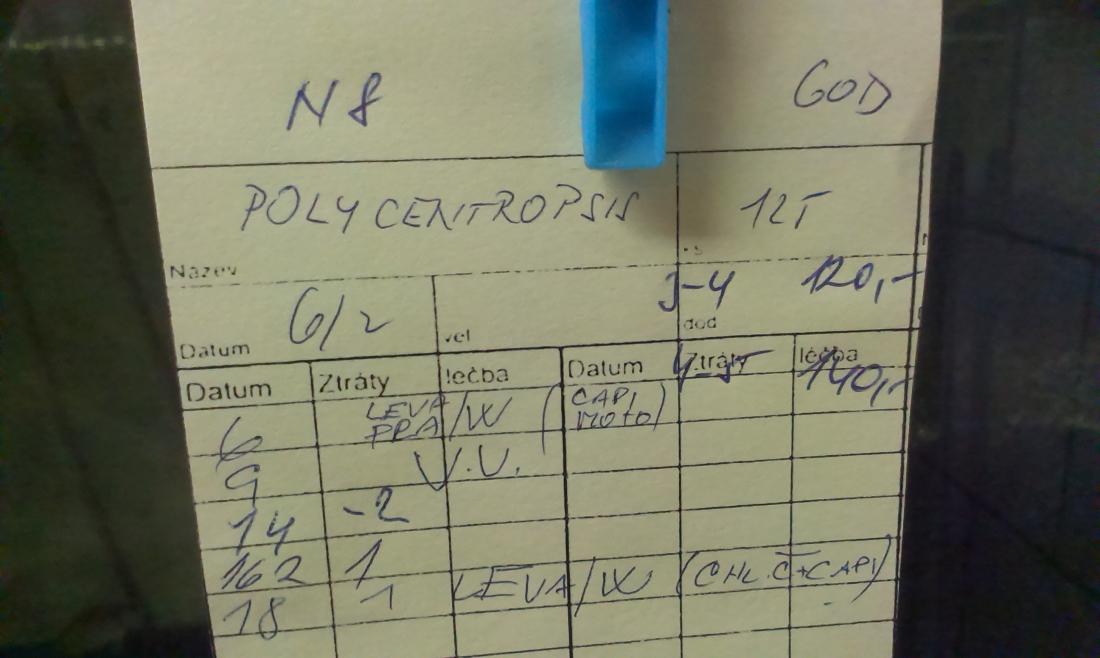 N8 GOD
POLYCENTROPSIS 12T
Název
3-4 120,-
6/2
Datum vel dod
4-5 140,-
Datum Ztráty léčba Datum Ztráty léčba
6 LEVA/W (CAPI
PRA MOTO)
9 V.V.
14 -2
162 1
18 1 LEVA/W (CHL.Č+CAPI)